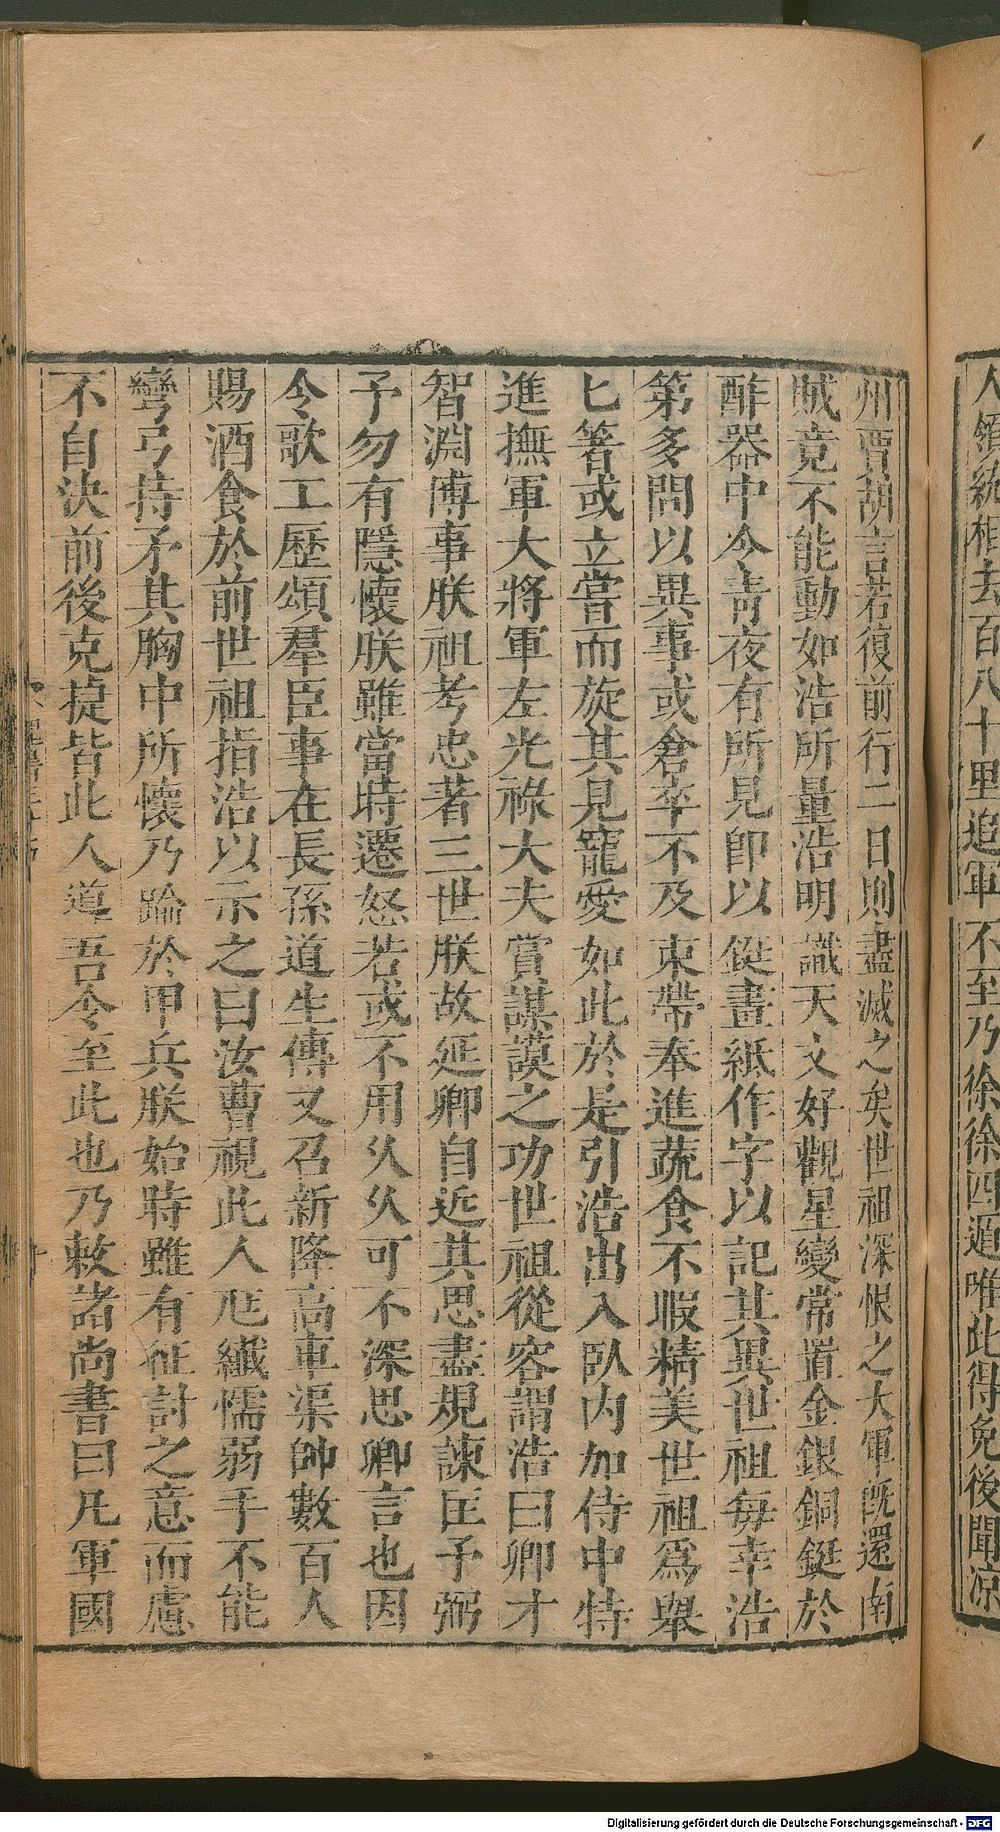 人領統相去百八十里追軍不至乃徐徐西遁唯此得免後聞凉
州賈胡言若復前行二日則盡滅之矣世祖深恨之大軍既還南
賊竟不能動如浩所量浩明識天文好觀星變常置金銀銅鋌於
酢器中令青夜有所見即以鋌畫紙作字以記其異世祖每幸浩
第多問以異事或倉卒不及束帶奉進蔬食不暇精美世祖爲舉
匕箸或立嘗而旋其見寵愛如此於是引浩出入臥內加侍中特
進撫軍大將軍左光祿大夫賞謀謨之功世祖從容謂浩曰卿才
智淵博事朕祖考忠著三世朕故延卿自近其思盡規諫匡予弼
予勿有隱懷朕雖當時遷怒若或不用久久可不深思卿言也因
令歌工歷頌羣臣事在長孫道生傳又召新降高車渠帥數百人
賜酒食於前世祖指浩以示之曰汝曹視此人尫纖懦弱手不能
彎弓持矛其胸中所懷乃踰於甲兵朕始時雖有征討之意而慮
不自決前後克捷皆此人導吾令至此也乃敕諸尚書曰凡軍國
Digitalisierung gefördert durch die Deutsche Forschungsgemeinschaft - DFG